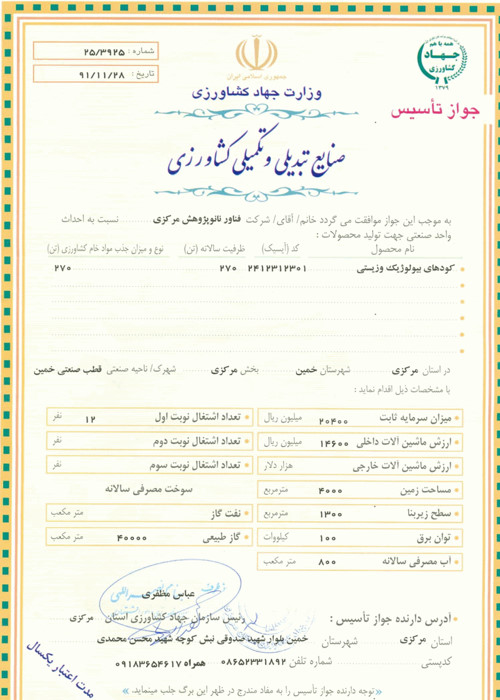 شماره : ۲۵/۳۹۲۵
تاریخ : ۹۱/۱۱/۲۸
جمهوری اسلامی ایران
وزارت جهاد کشاورزی
همه با هم
جهاد
کشاورزی
۱۳۷۹
جواز تأسیس
صنایع تبدیلی و تکمیلی کشاورزی
به موجب این جواز موافقت می گردد خانم/ آقای/ شرکت فناور نانوپژوهش مرکزی نسبت به احداث
واحد صنعتی جهت تولید محصولات :
نام محصول کد (آیسیک) ظرفیت سالانه (تن) نوع و میزان جذب مواد خام کشاورزی (تن)
کودهای بیولوژیک وزیستی ۲۴۱۲۳۱۲۳۰۱ ۲۷۰ ۲۷۰
در استان مرکزی شهرستان خمین بخش مرکزی شهرک/ ناحیه صنعتی قطب صنعتی خمین
با مشخصات ذیل اقدام نماید :
میزان سرمایه ثابت ۲۰۴۰۰ میلیون ریال تعداد اشتغال نوبت اول ۱۲ نفر
ارزش ماشین آلات داخلی ۱۴۶۰۰ میلیون ریال تعداد اشتغال نوبت دوم نفر
ارزش ماشین آلات خارجی هزار دلار تعداد اشتغال نوبت سوم نفر
مساحت زمین ۴۰۰۰ مترمربع سوخت مصرفی سالانه
سطح زیربنا ۱۳۰۰ مترمربع نفت گاز متر مکعب
توان برق ۱۰۰ کیلووات گاز طبیعی ۴۰۰۰۰ متر مکعب
آب مصرفی سالانه ۸۰۰ متر مکعب
عباس مظفری
آدرس دارنده جواز تأسیس : رئیس سازمان جهاد کشاورزی استان مرکزی
استان مرکزی شهرستان خمین بلوار شهید صدوقی نبش کوچه شهید محسن محمدی
کدپستی شماره تلفن ۰۸۶۵۲۳۳۱۸۹۲ همراه ۰۹۱۸۳۶۵۴۶۱۷
مدت اعتبار یکسال
توجه دارنده جواز تأسیس را به مفاد مندرج در ظهر این برگ جلب مینماید.